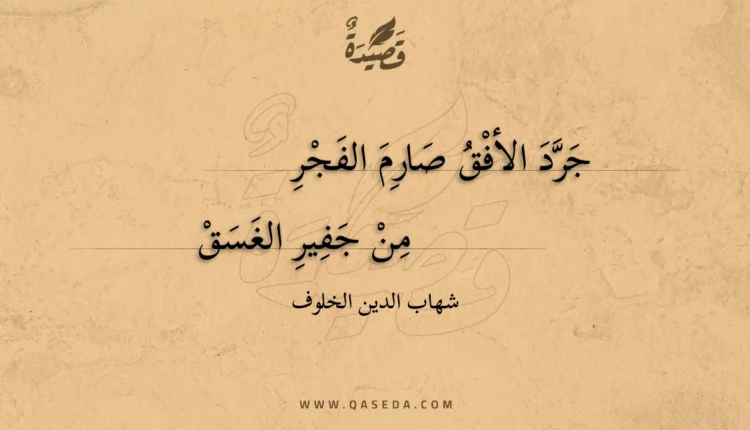 قَصِيْدَةٌ
جَرَّدَ الأفْقُ صَارِمَ الفَجْرِ
مِنْ جَفِيرِ الغَسَقْ
شهاب الدين الخلوف
WWW.QASEDA.COM